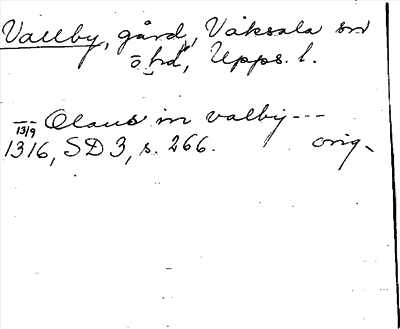 Vallby, gård, Vaksala sn
o hd, Upps. l.
--- Olaus in valby ---
13/9
1316, SD 3, s. 266. orig.